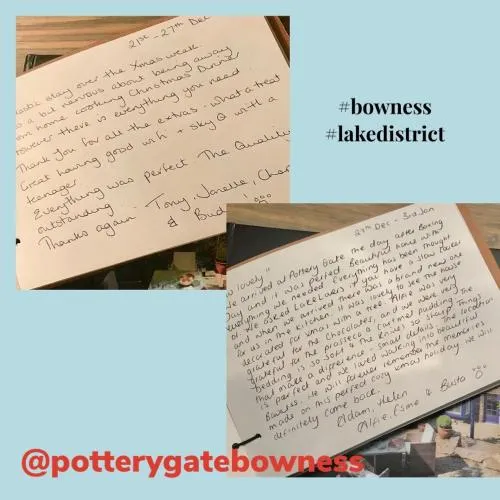 21st - 27th Dec
stay over the Xmas week.
a bit nervous about being away
home cooking Christmas Dinner
However there is everything you need
Thank you for all the extras. What a treat
Great having good wifi + Sky Q with a
teenager
Everything was perfect The Quality
outstanding
Thanks again Tony, Janelle,
& Bud
#bowness
#lakedistrict
27th Dec - 3rd Jan
lovely"
We arrived at Pottery Gate the day after Boxing
Day and it was perfect. Beautiful home with
everything we needed. Everything has been thought
of. We asked Lakelovers if you have a slow cooker
and when we arrived there was a brand new one
for us in the kitchen. It was lovely to see the house
decorated for xmas with a tree. Alfie was very
grateful for the chocolates, and we were very
grateful for the prossecco & christmas pudding. The
bedding is so soft & the knives so sharp! Things
that make a difference - small details. The location
is perfect and we loved walking into beautiful
Bowness. We will forever remember the memories
made on this perfect cozy xmas holiday. We will
definitely come back.
Adam, Helen
Alfie, Esme & Busta
@potterygatebowness